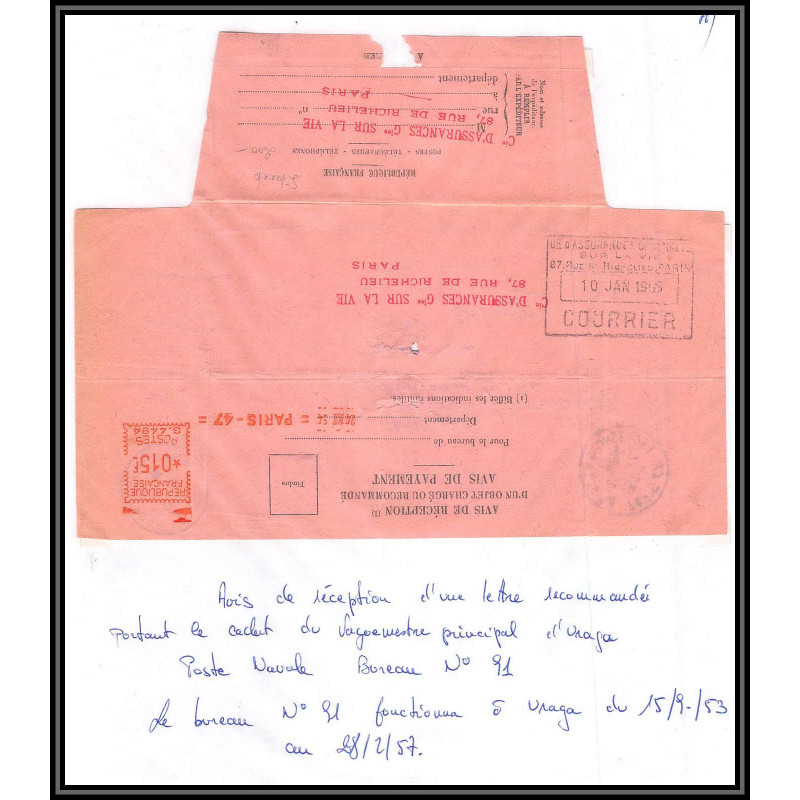 NOR
A
département
à
PARIS
rue
n°
87, RUE DE RICHELIEU
M
Cie D'ASSURANCES Gles SUR LA VIE
POSTES - TÉLÉGRAPHES - TÉLÉPHONES
RÉPUBLIQUE FRANÇAISE
Nom et adresse
de l'expéditeur.
À REMPLIR
PAR L'EXPÉDITEUR
PARIS
87, RUE DE RICHELIEU
Cie D'ASSURANCES Gles SUR LA VIE
SUR LA VIE
10 JAN 1955
COURRIER
(1) Biffer les indications inutiles.
Département
Pour le bureau de
= PARIS-47 =
AVIS DE PAIEMENT
D'UN OBJET CHARGÉ OU RECOMMANDÉ
AVIS DE RÉCEPTION (1)
Timbre
G.4494
POSTES
*015F
RÉPUBLIQUE
FRANÇAISE
Avis de réception d'une lettre recommandée
portant le cachet du Vaguemestre principal d'Uraga
Poste Navale Bureau N° 91
Le bureau N° 91 fonctionna à Uraga du 15/9/53
au 28/2/57.